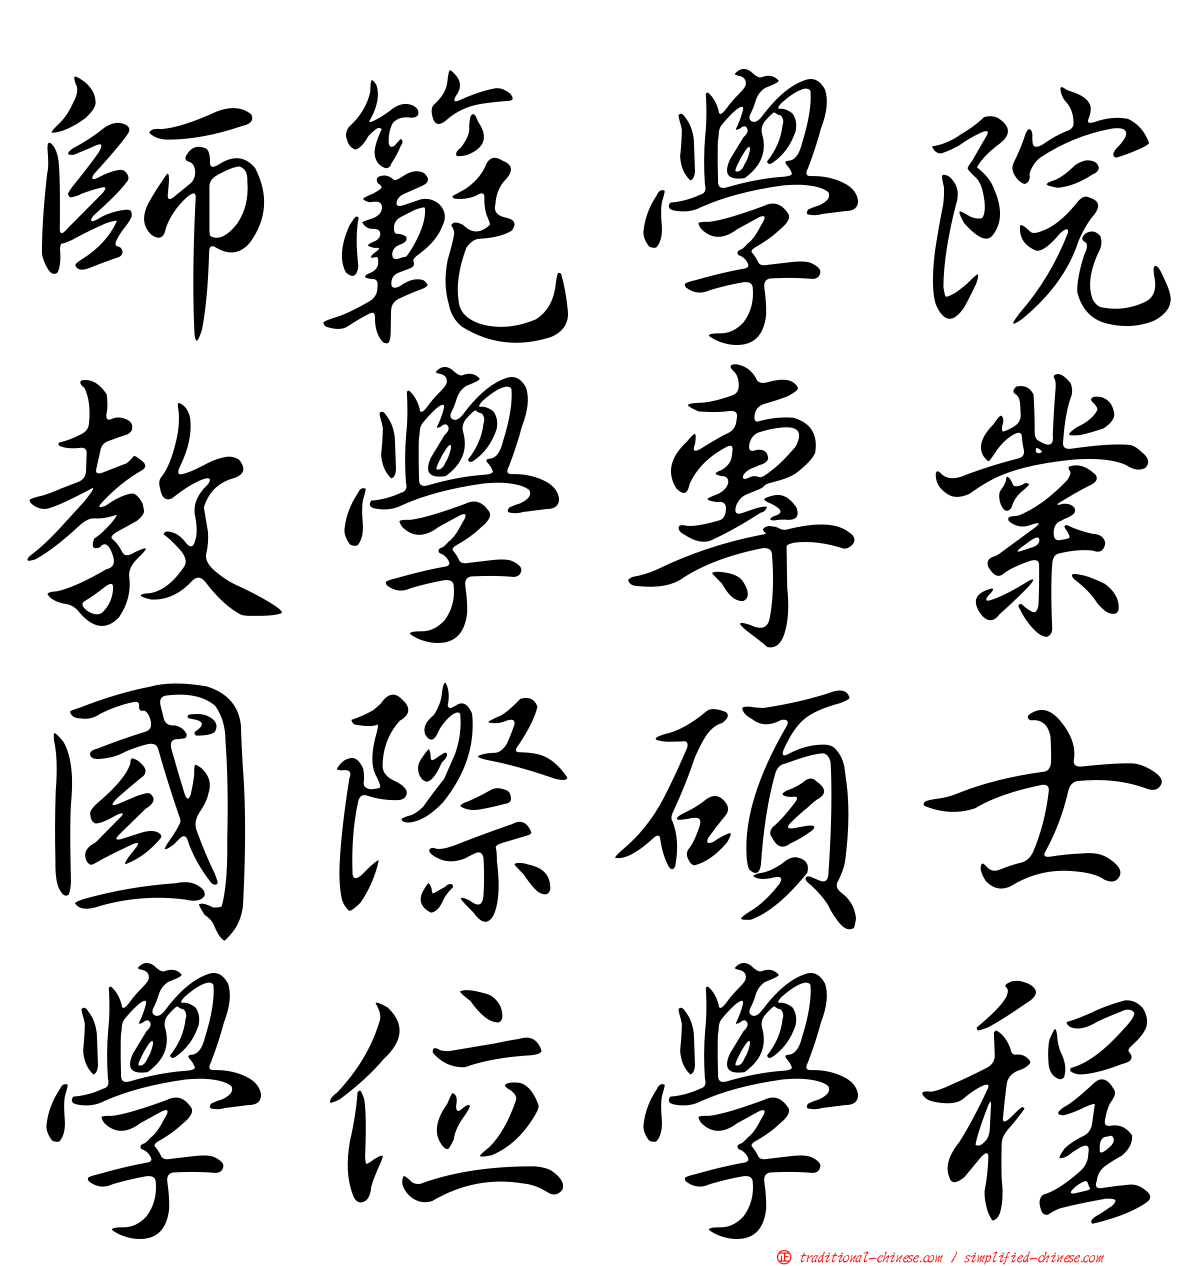 師範學院
教學專業
國際碩士
學位學程
正 traditional-chinese.com / simplified-chinese.com